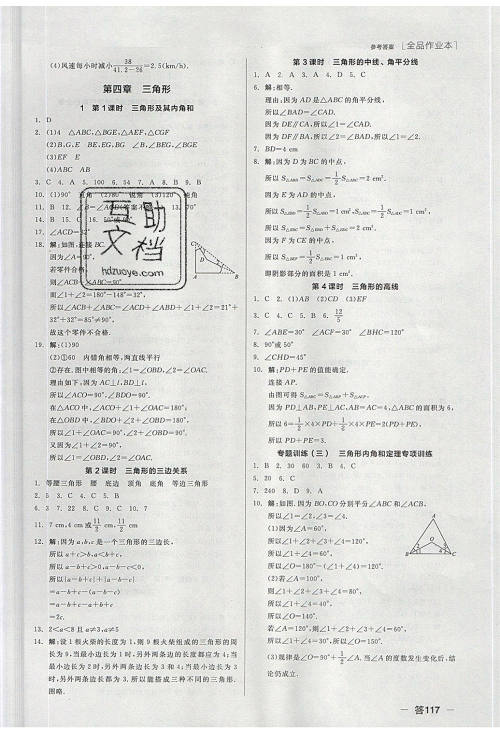 参考答案 [全品作业本]
(4)风速每小时减小38/(41.2-26)=2.5(km/h).
第四章 三角形
1 第1课时 三角形及其内角和
1. D
2. (1)4 △ABC,△BGE,△AEF,△CGF
(2)B,G,E BE,EG,BG ∠B,∠BEG,∠BGE
(3)EF E
(4)ABC AB
3. C 4. A 5. 100 6. 54 7. A 8. B 9. B
10. (1)90° 直角 (2)80°
11. B 12.
14. B 15. C 16. 50°
17. ∠ACD
18. 解:如图,连接BC.
因为∠A=90°,
若零件合格,
则∠ACB+∠ABC=90°,
而∠1+∠2=180°-148°=32°,
所以∠ACB+∠ABC=∠ACD+∠ABD+∠1+∠2=21°+
32°+32°=85°≠90°,
故这个零件不合格.
19. 解:(1)90°
(2)①60 内错角相等,两直线平行
②存在.图中相等的角:∠1=∠OBD,∠2=∠OAC.
理由如下,因为AC⊥l,BD⊥l,
所以∠ACO=90°,∠BDO=90°.
在△ACO中,∠ACO+∠1+∠OAC=180°;
在△OBD中,∠BDO+∠2+∠OBD=180°,
所以∠1+∠OAC=90°,∠2+∠OBD=90°.
又因为∠1+∠2=90°,
所以∠1=∠OBD,∠2=∠OAC.
第2课时 三角形的三边关系
1. 等腰三角形 腰 底边 顶角 底角 等边三角形
2. 5 3. C 4. C 5. B
6. 3 7. 22 8. C 9. C 10. 7
11. 7 cm,4 cm或11/2 cm,11/2 cm
12. 解:因为a,b,c是一个三角形的三边长,
所以a+c>b,a<b+c,
所以a-b+c>0,a-b-c<0,
所以|a-b+c|+|a-b-c|
=a-b+c-(a-b-c)
=a-b+c-a+b+c
=2c.
13. 2<a<8且a≠3,a≠5
14. 解:设1根火柴的长度为1,则9根火柴组成的三角形的周
长为9,当最小边长为1时,另外两条边的长度都应为4;当
最小边长为2时,另外两条边长为3和4;当最小边长为3
时,另外两条边长都为3.所以能搭成三种不同的三角形.
图略.
第3课时 三角形的中线、角平分线
1. A 2. A 3. A 4. D 5. C
6. 解:相等.
理由:因为AD是△ABC的角平分线,
所以∠BAD=∠CAD.
因为DE∥CA,所以∠1=∠CAD.
因为DF∥BA,所以∠2=∠BAD,所以∠1=∠2.
7. BD=4 cm
8. 解:因为D为BC的中点,
所以S△ABD=S△ADC=1/2S△ABC=2 cm².
因为E为AD的中点,
所以S△BDE=1/2S△ABD=1 cm²,S△CDE=1/2S△ADC=1 cm²,
所以S△BEC=S△BDE+S△CDE=2 cm².
因为F为CE的中点,
所以S△BEF=1/2S△BEC=1 cm²,
即阴影部分的面积是1 cm².
第4课时 三角形的高线
1. C 2. (1)AB (2)CD (3)EF
3. C 4. C 5. B 6. 12/5
7. ∠ABE=30° ∠ACF=30° ∠BHC=120°
8. 90°或50°
9. ∠CHD=45°
10. 解:PD+PE的值能确定.
连接AP.
由图可得S△ABC=S△ABP+S△ACP.
因为PD⊥AB,PE⊥AC,AB=AC=4,△ABC的面积为6,
所以6=1/2×4×PD+1/2×4×PE=2(PD+PE),
所以PD+PE=3.
专题训练(三) 三角形内角和定理专项训练
1. B 2. 30 60 3. B 4. C
5. 20 6. C
7. 240 8. D 9. A
10. 解:如图.因为BO,CO分别平分∠ABC和∠ACB,
所以∠1=∠2,∠3=∠4.
(1)因为∠A=60°,
所以∠1+∠2+∠3+∠4=120°,
所以∠1+∠4=60°,
所以∠O=180°-(∠1+∠4)=120°.
(2)若∠A=100°,
则∠1+∠2+∠3+∠4=80°,
所以∠1+∠4=40°,
所以∠O=140°.
若∠A=120°,则∠1+∠2+∠3+∠4=60°,
所以∠1+∠4=30°,所以∠O=150°.
(3)规律是∠O=90°+1/2∠A.当∠A的度数发生变化后,结
论仍成立.
互助文档
hdzuoye.com
答117